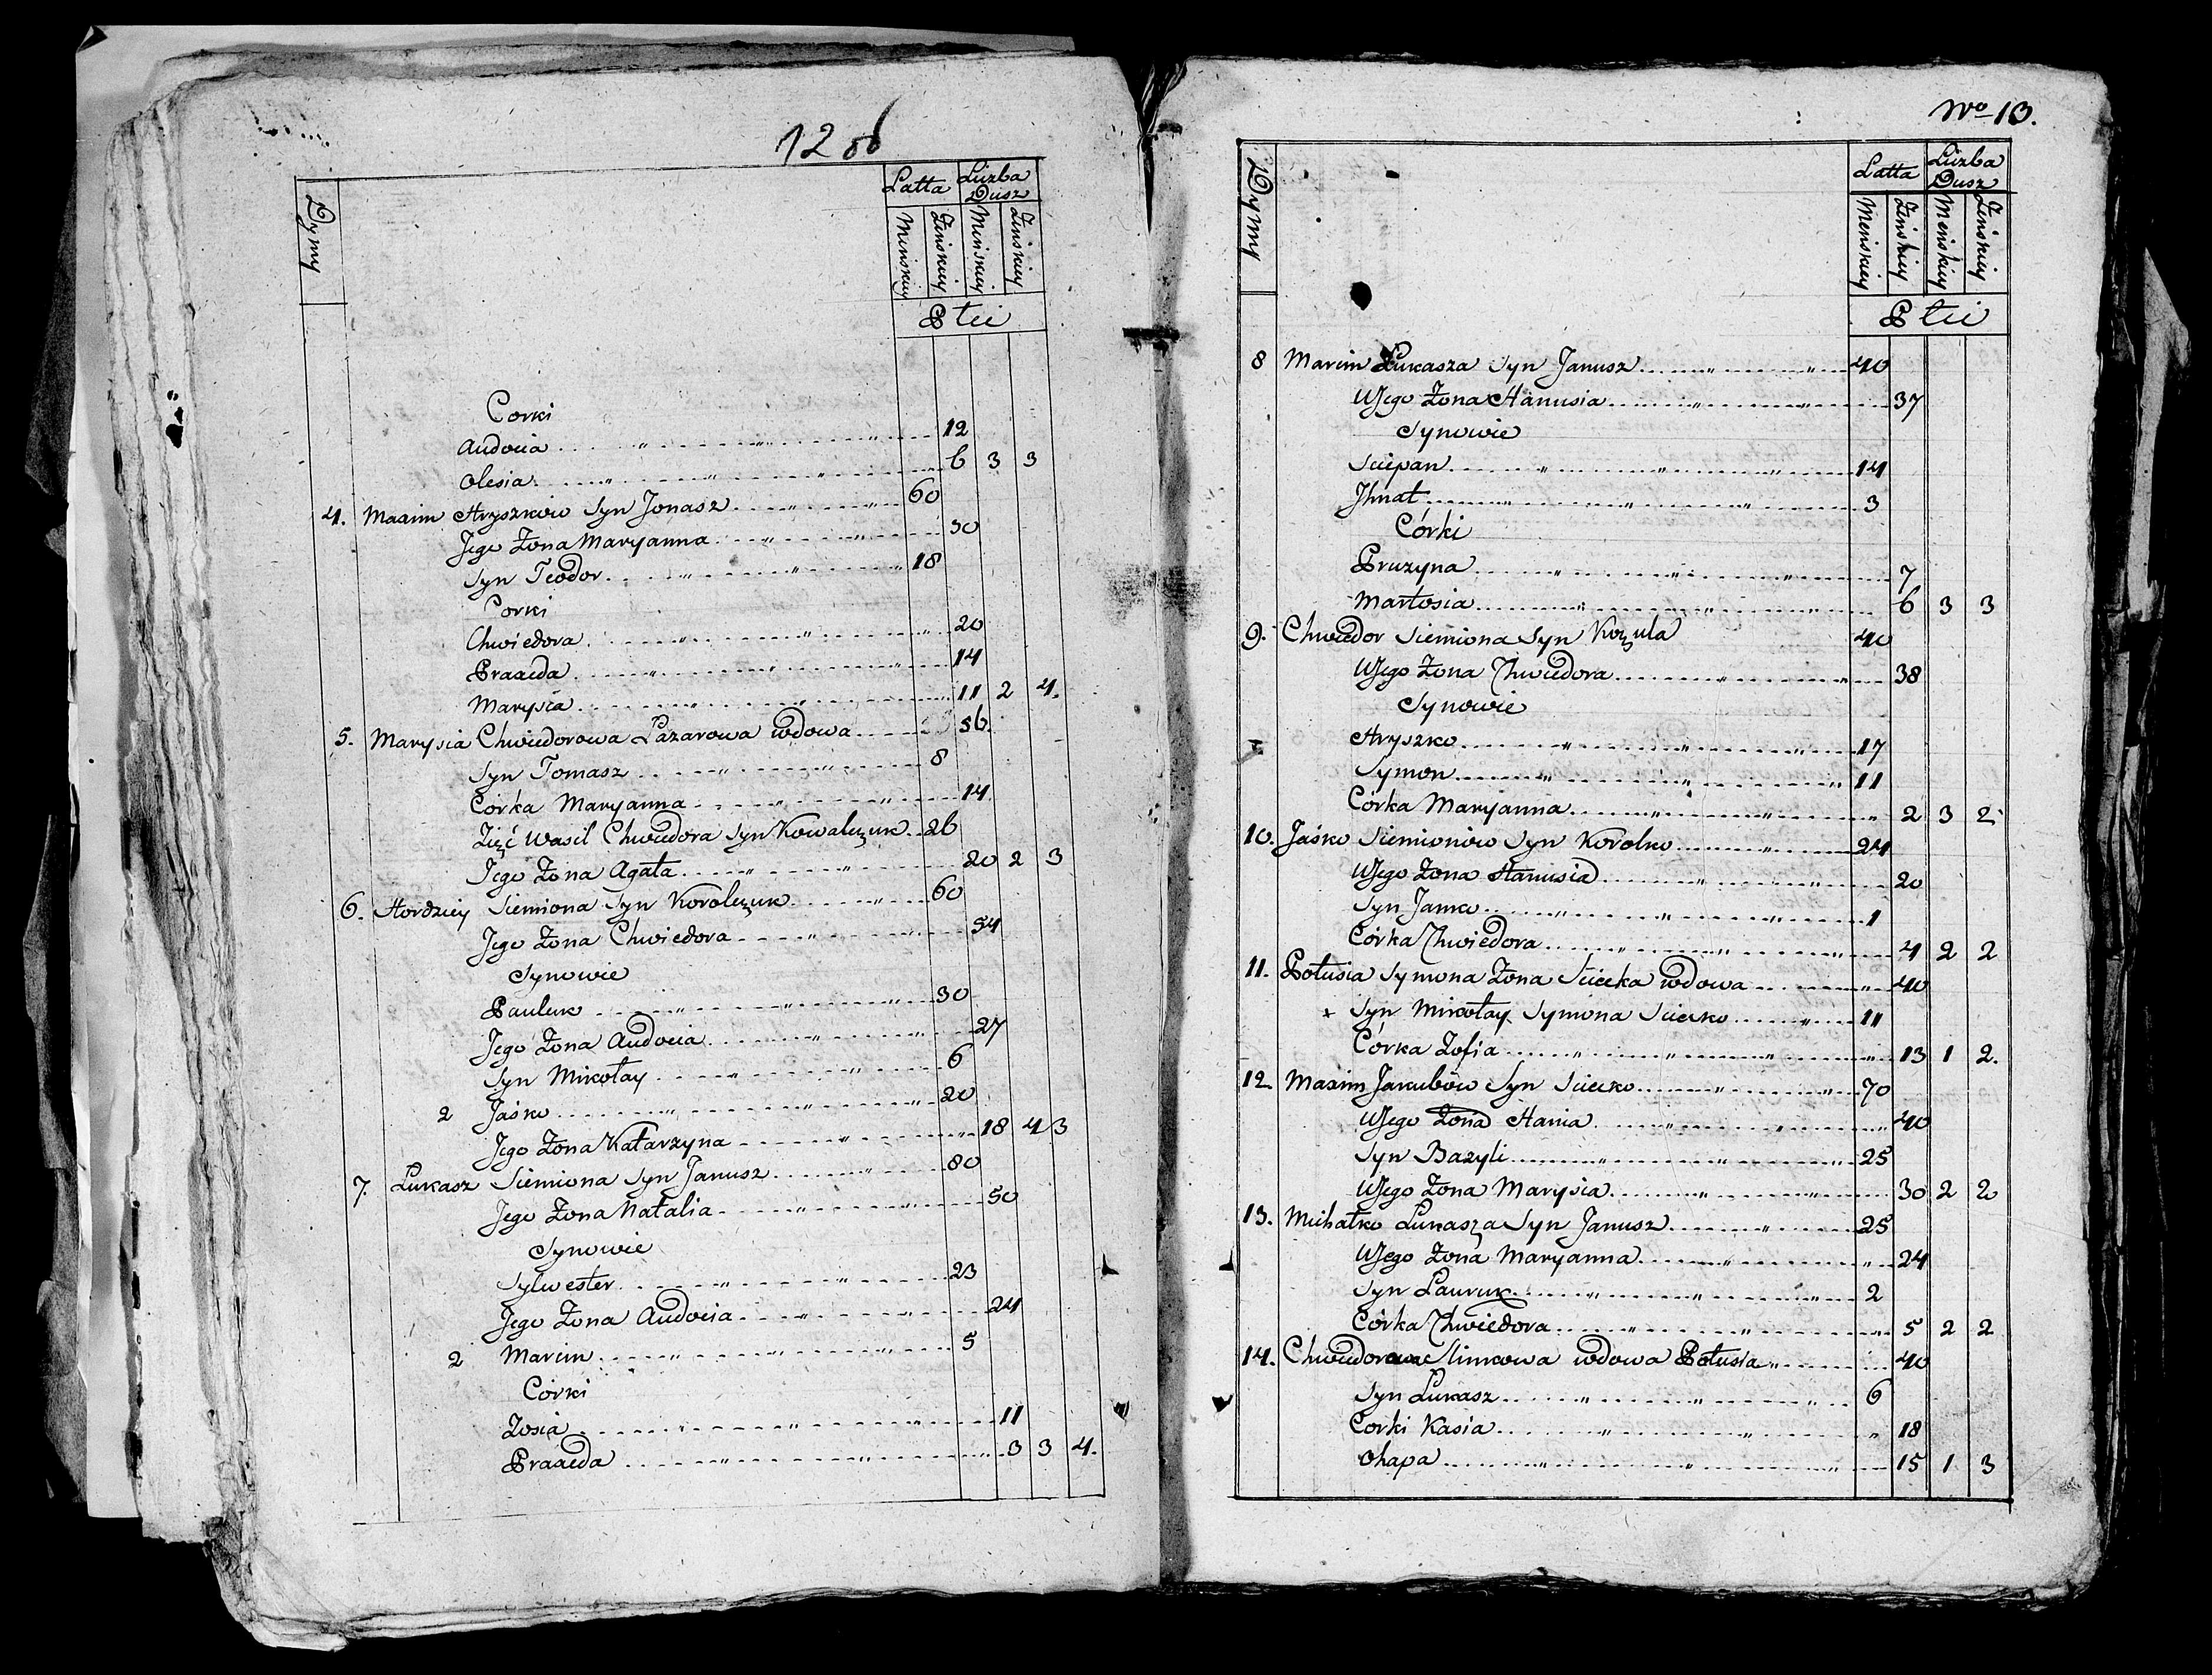 12 об
Dymy
Latta
Liczba Dusz
Męskiey
Żeńskiey
Męskiey
Żeńskiey
Płci
Corki
Audocia 12
Olesia 6 3 3
4. Maxim Hryszków Syn Jonasz 60
Jego Żona Maryanna 50
Syn Teodor 18
Corki
Chwiedora 20
Praxeda 14
Marysia 11 2 4.
5. Marysia Chwiedorowa Łazarowa wdowa 56.
Syn Tomasz 8
Córka Maryanna 14
Zięć Wasil Chwiedora Syn Kowalczuk 26
Jego Żona Agata 20 2 3
6. Hordziey Siemiona Syn Korolczuk 60
Jego Żona Chwiedora 54
Synowie
Pauluk 30
Jego Żona Audocia 27
Syn Mikołay 6
2 Jaśko 20
Jego Żona Katarzyna 18 4 3
7. Łukasz Siemiona Syn Janusz 80
Jego Żona Natalia 50
Synowie
Sylwester 23
Jego Żona Audocia 24
2 Marcin 5
Córki
Zosia 11
Praxeda 3 3 4.
No 13.
Dymy
Latta
Liczba Dusz
Męskiey
Żeńskiey
Męskiey
Żeńskiey
Płci
8 Marcin Łukasza Syn Janusz 40
U Jego Żona Hanusia 37
Synowie
Sciepan 14
Jhnat 3
Córki
Pruzyna 7
Martosia 6 3 3
9. Chwiedor Siemiona Syn Kozula 40
U Jego Żona Chwiedora 38
Synowie
Hryszko 17
Symon 11
Córka Maryanna 2 3 2
10. Jaśko Siemionów Syn Korolko 24
U Jego Żona Hanusia 20
Syn Janko 1
Córka Chwiedora 4 2 2
11. Połusia Symona Żona Sciecka wdowa 40
+ Syn Mikołay Symona Sciecko 11
Córka Zofia 13 1 2.
12 Maxim Jakubów Syn Sciecko 70
U Jego Żona Hania 40
Syn Bazyli 25
U Jego Żona Marysia 30 2 2
13. Michałko Łukasza Syn Janusz 25
U Jego Żona Maryanna 24
Syn Ławruk 2
Córka Chwiedora 5 2 2
14. Chwiedorowa wdowa Połusia 40
Syn Łukasz 6
Corki Kasia 18
Ohapa 15 1 3